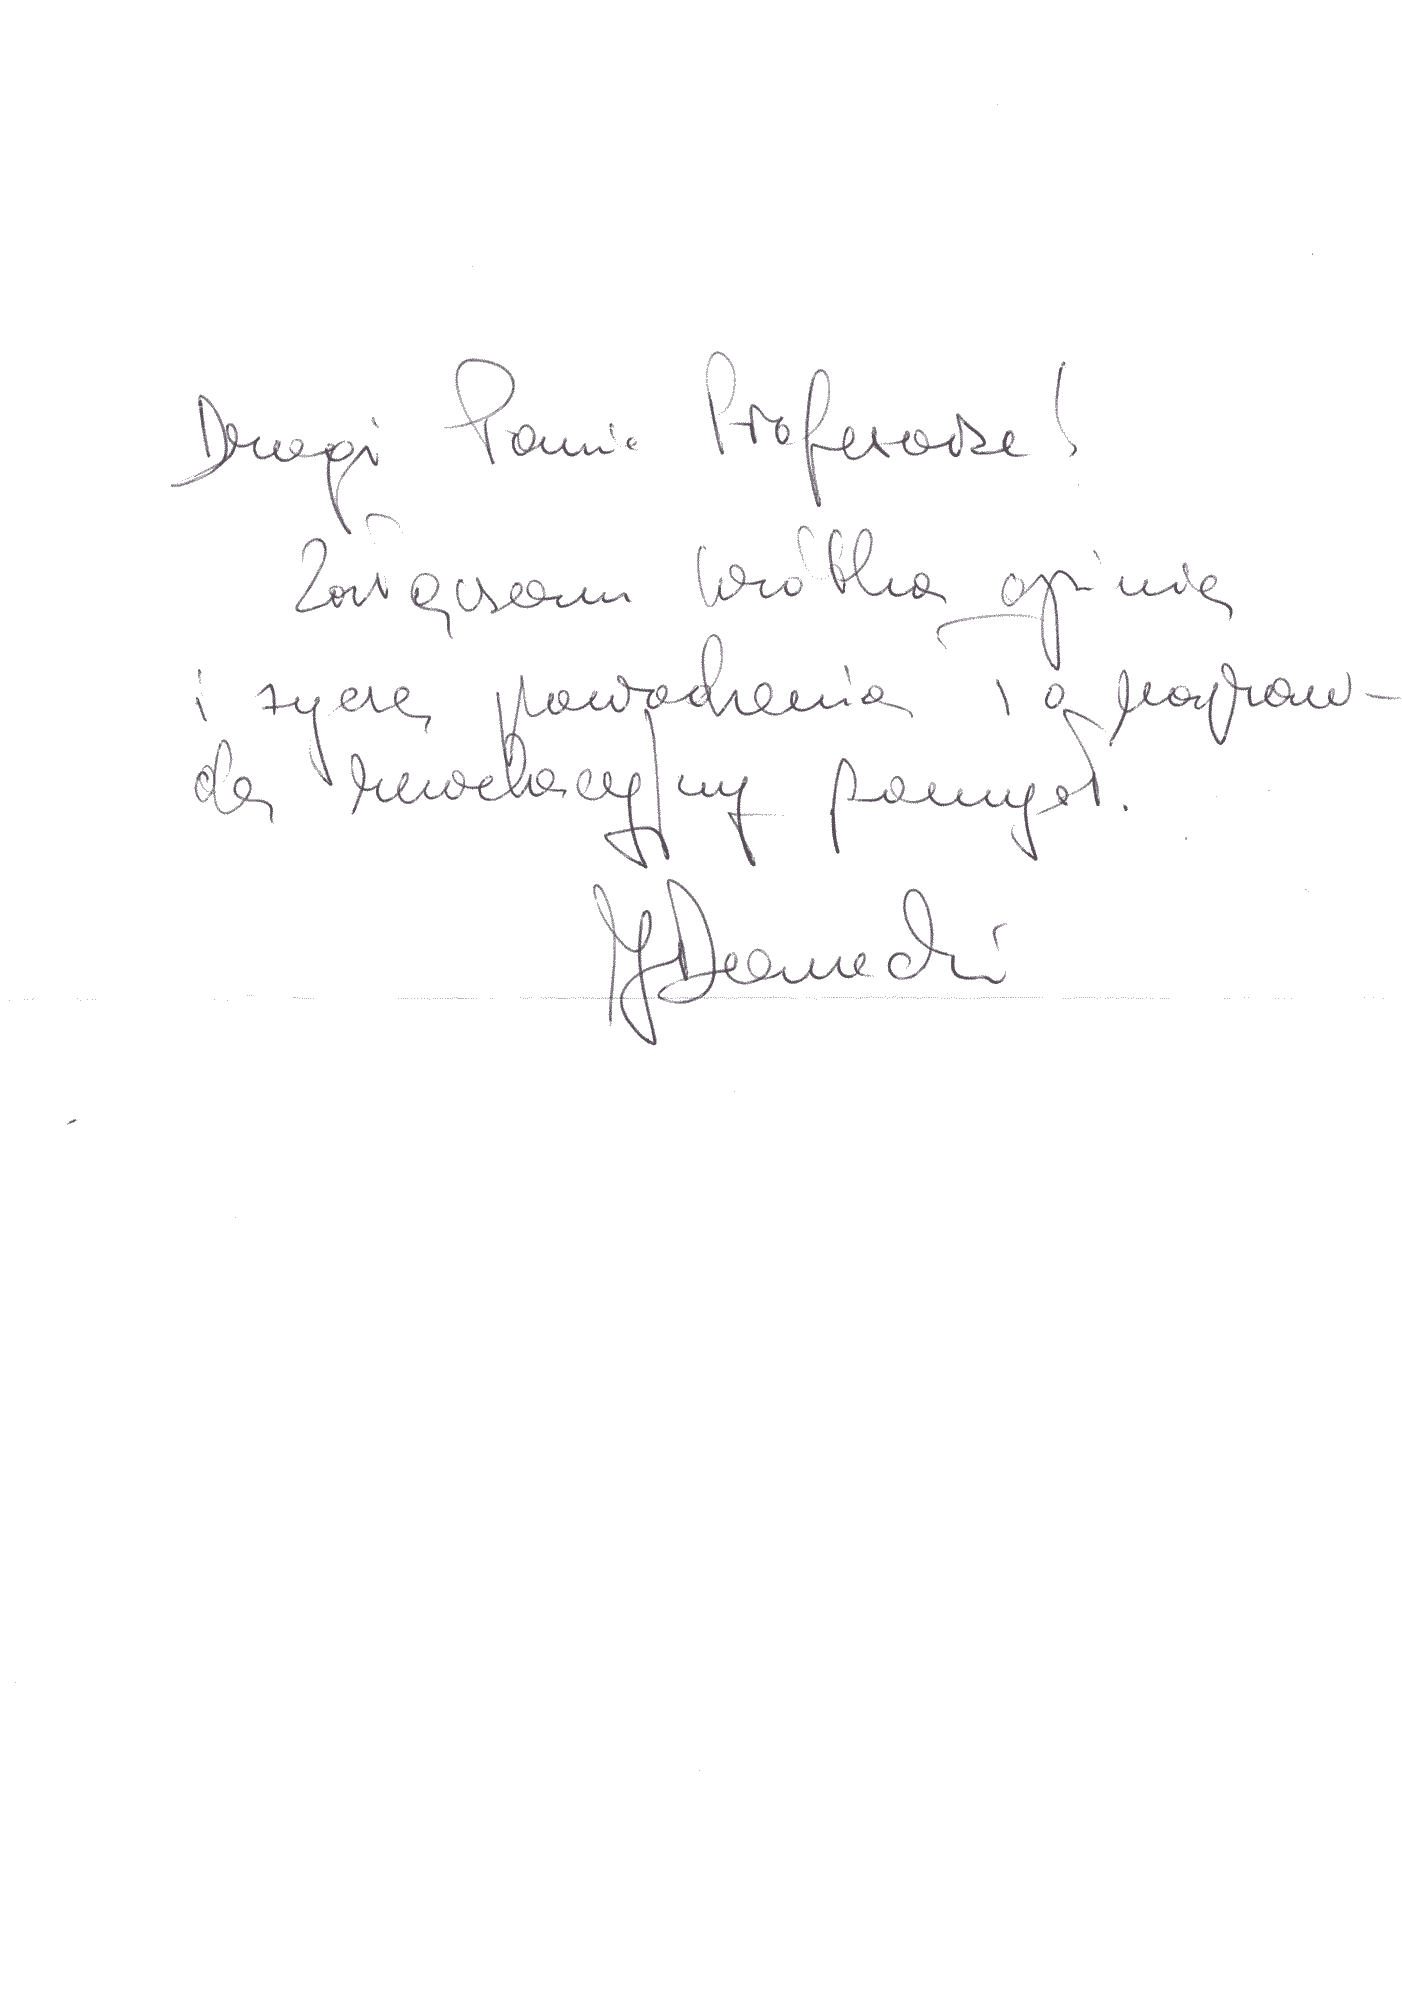 Drogi Panie Profesorze!
Załączam krótką opinię
i życzę powodzenia i o napraw-
dę rewelacyjny pomysł.